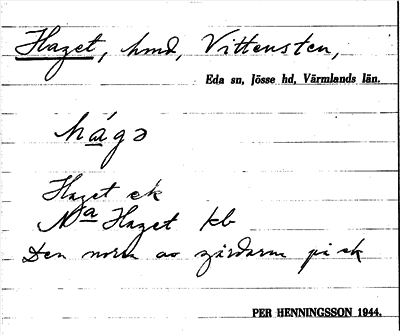 Haget, hmd, Vittensten,
Eda sn, Jösse hd, Värmlands län.
hágə
Haget ek
Na Haget kb
Den norra av gårdarna på ek
PER HENNINGSSON 1944.